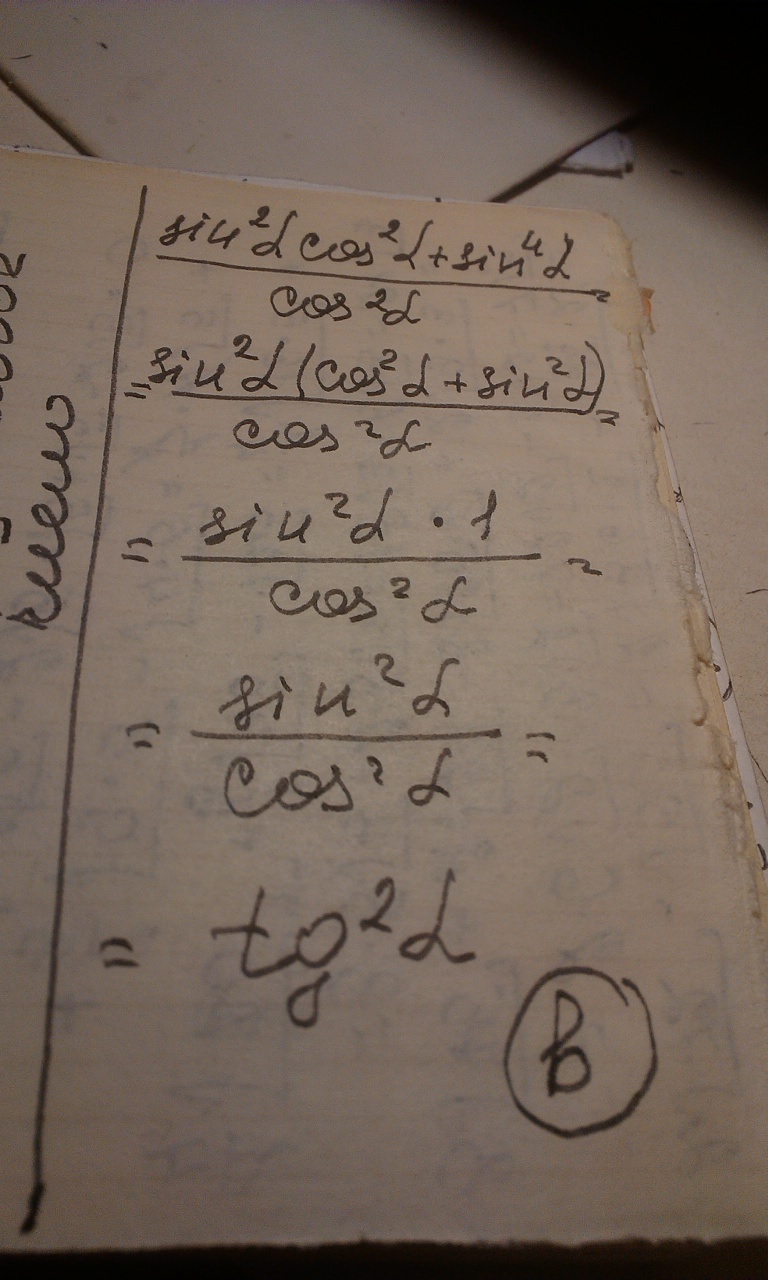 sin²α cos²α + sin⁴α / cos²α =
= sin²α (cos²α + sin²α) / cos²α =
= sin²α · 1 / cos²α =
= sin²α / cos²α =
= tg²α
В